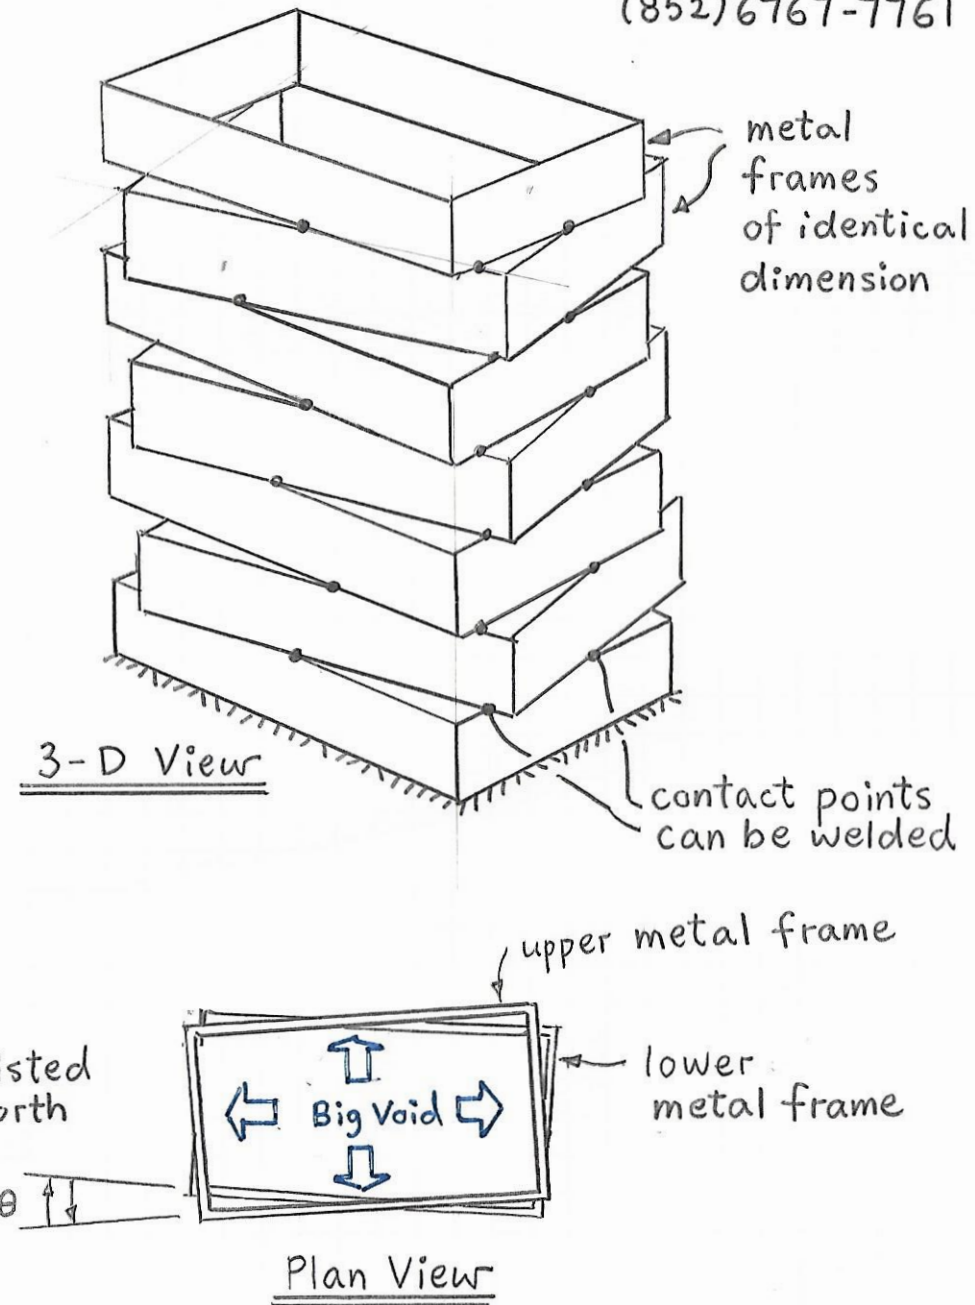 (852)6767-7761
metal
frames
of identical
dimension
3-D View
contact points
can be welded
upper metal frame
lower
metal frame
Big Void
θ
Plan View